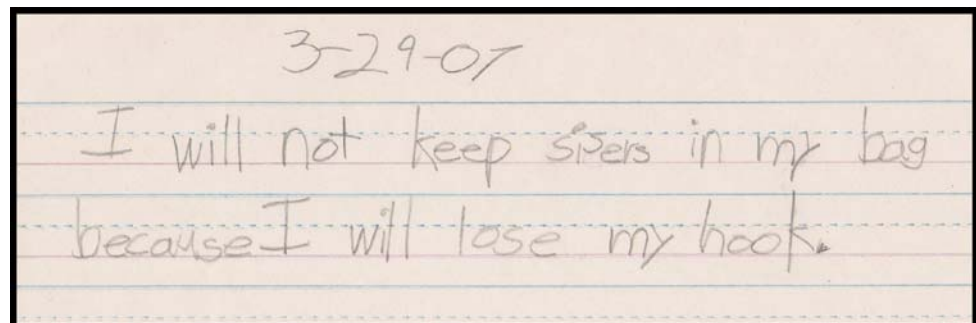 3-29-07
I will not keep sisers in my bag
because I will lose my hook.